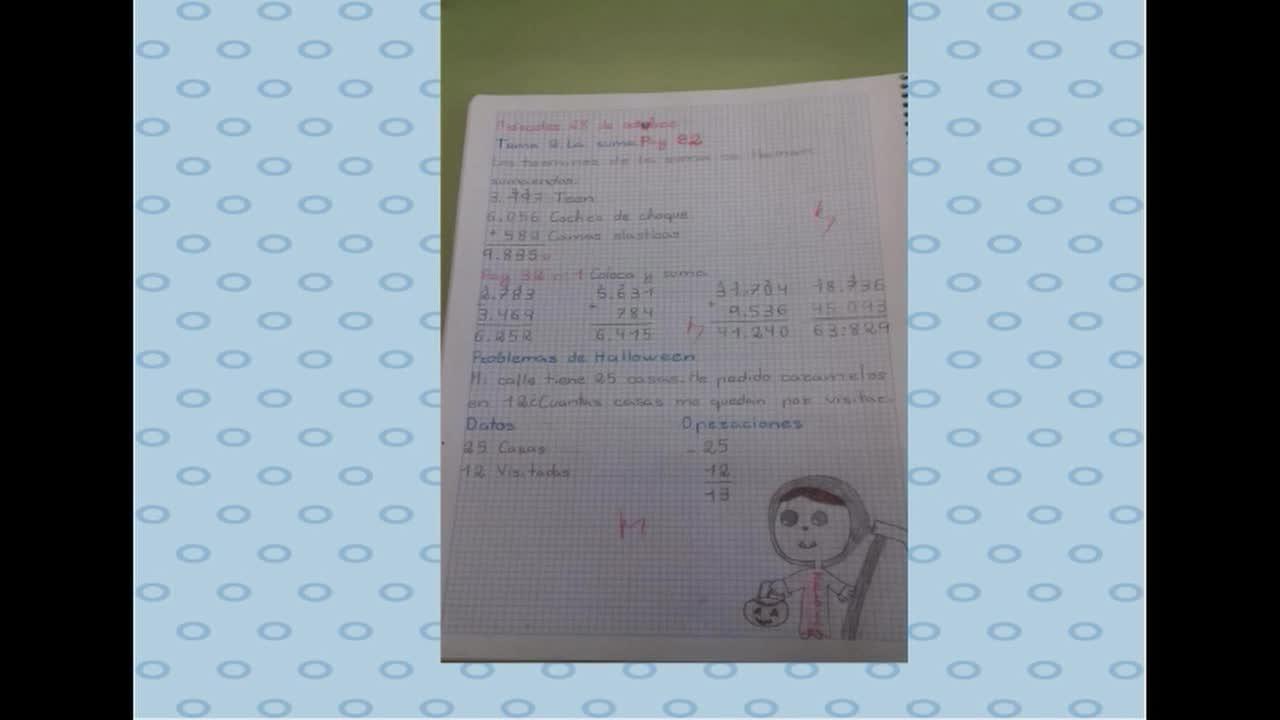 Miércoles 28 de octubre
Tema 2 La suma Pag 22
Los terminos de la suma se llaman
sumandos.
3.197 Tison
6.056 Coches de choque
+ 582 Camas elasticas
9.835
Pag 32 n: 1 Coloca y suma
2.783 5.631 31.704 18.736
+ 3.469 + 784 + 9.536 45.093
6.252 6.415 41.240 63.829
Problemas de Halloween
Mi calle tiene 25 casas. He pedido caramelos
en 12 ¿Cuantas casas me quedan por visitar.
Datos Operaciones
25 Casas - 25
12 Visitadas 12
13